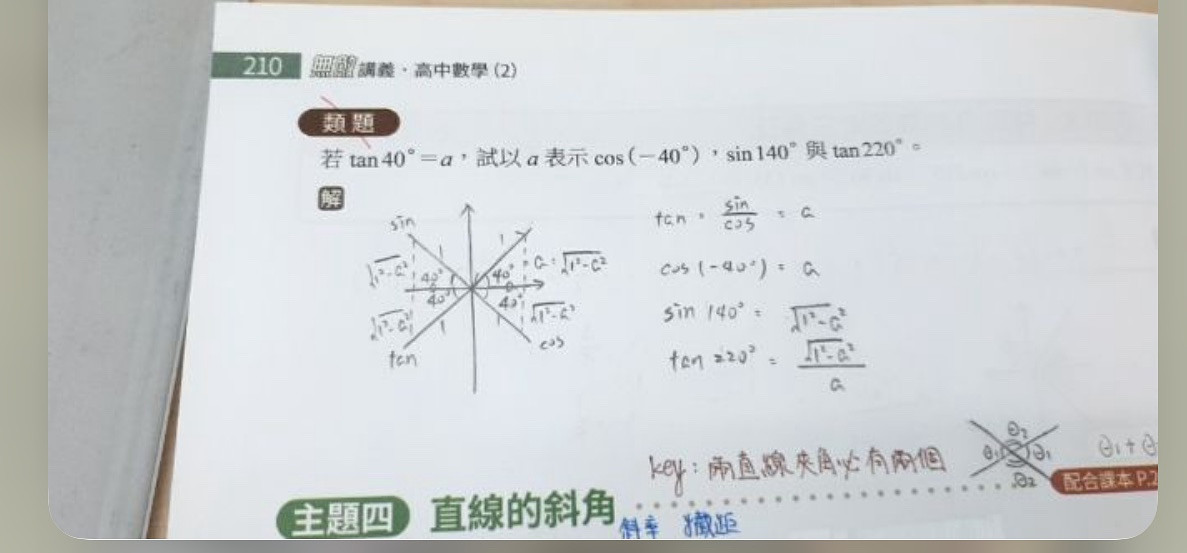 210 無敵講義・高中數學(2)
類題
若 tan 40°=a,試以 a 表示 cos(−40°),sin 140° 與 tan 220°。
解
sin
1 1
√1²-a² 40° 40° a = √1²-a²
40° 40°
√1²-a² 1 1 √1²-a²
tan cos
tan = sin/cos = a
cos (-40°) = a
sin 140° = √1²-a²
tan 220° = √1²-a²/a
key: 兩直線夾角必有兩個
θ₂
θ₁ θ₁
θ₂
θ₁+θ
配合課本 P.2
主題四 直線的斜角
斜率 截距